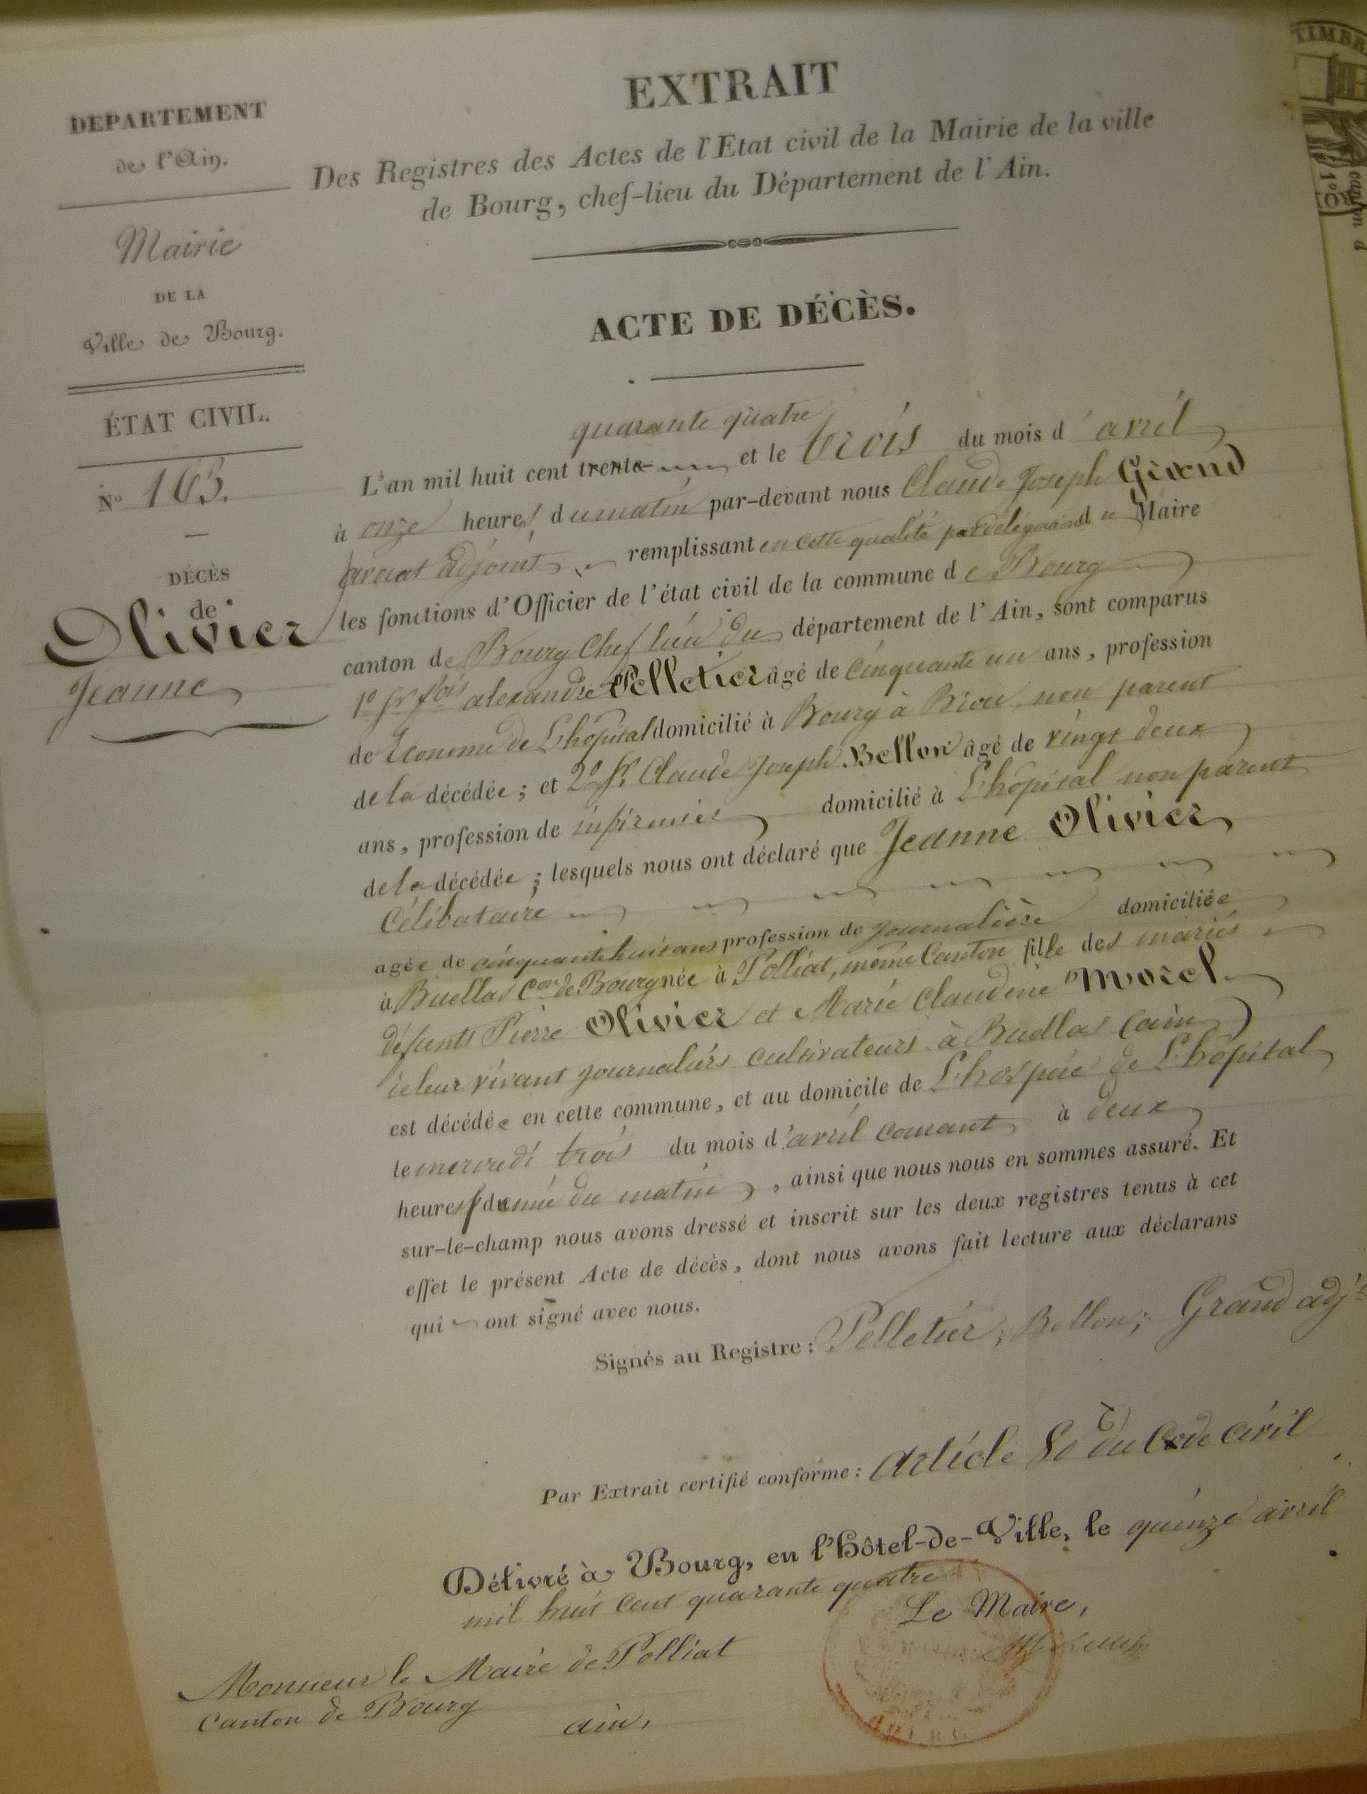 DEPARTEMENT
de l'Ain.
Mairie
DE LA
Ville de Bourg.
ÉTAT CIVIL.
N° 163.
DÉCÈS
de
Olivier
Jeanne
EXTRAIT
Des Registres des Actes de l'Etat civil de la Mairie de la ville
de Bourg, chef-lieu du Département de l'Ain.
ACTE DE DÉCÈS.
quarante quatre
L'an mil huit cent trente et le trois du mois d'avril
à onze heures du matin par-devant nous Claude Joseph Grand
avocat adjoint remplissant en cette qualité par délégation de Maire
les fonctions d'Officier de l'état civil de la commune de Bourg
canton de Bourg Chef lieu du département de l'Ain, sont comparus
1° Sr fois alexandre Pelletier âgé de cinquante un ans, profession
de Econome de L'hôpital domicilié à Bourg à Brou, non parent
de la décédée; et 2° Sr Claude Joseph Bellon âgé de vingt deux
ans, profession de infirmier domicilié à L'hôpital non parent
de la décédée; lesquels nous ont déclaré que Jeanne Olivier
Célibataire
agée de cinquante huit ans profession de journalière domiciliée
à Buellas Con de Bourg née à Polliat, même Canton fille des mariés
défunts Pierre Olivier et Marie Claudine Morel
de leur vivant journaliers cultivateurs à Buellas (ain)
est décédée en cette commune, et au domicile de L'hospice de L'hôpital
le mercredi trois du mois d'avril courant à deux
heures & demie du matin, ainsi que nous nous en sommes assuré. Et
sur-le-champ nous avons dressé et inscrit sur les deux registres tenus à cet
effet le présent Acte de décès, dont nous avons fait lecture aux déclarans
qui ont signé avec nous.
Signés au Registre: Pelletier; Bellon; Grand adjt
Par Extrait certifié conforme: Article 80 du Code Civil
Délivré à Bourg, en l'Hôtel-de-Ville, le quinze avril
mil huit cent quarante quatre
Le Maire,
Monsieur le Maire de Polliat
Canton de Bourg
ain.
TIMBR